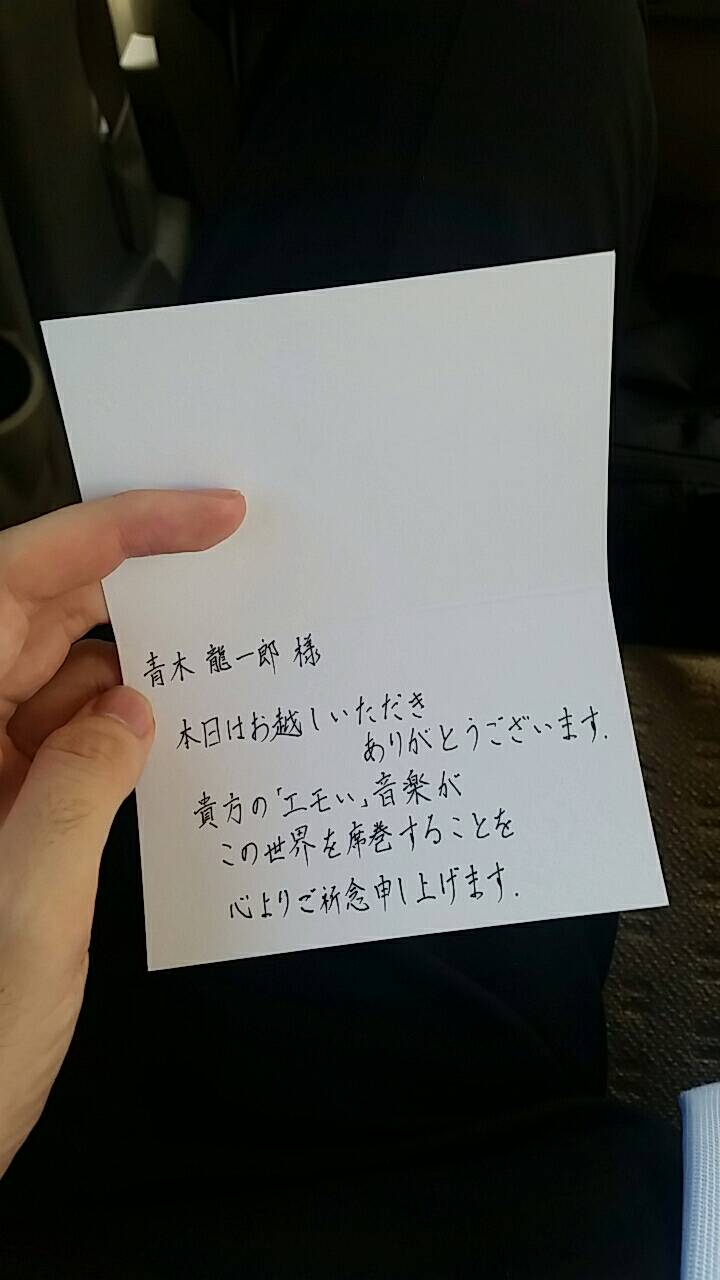 青木 龍一郎 様
本日はお越しいただき
ありがとうございます.
貴方の「エモい」音楽が
この世界を席巻することを
心よりご祈念申し上げます.